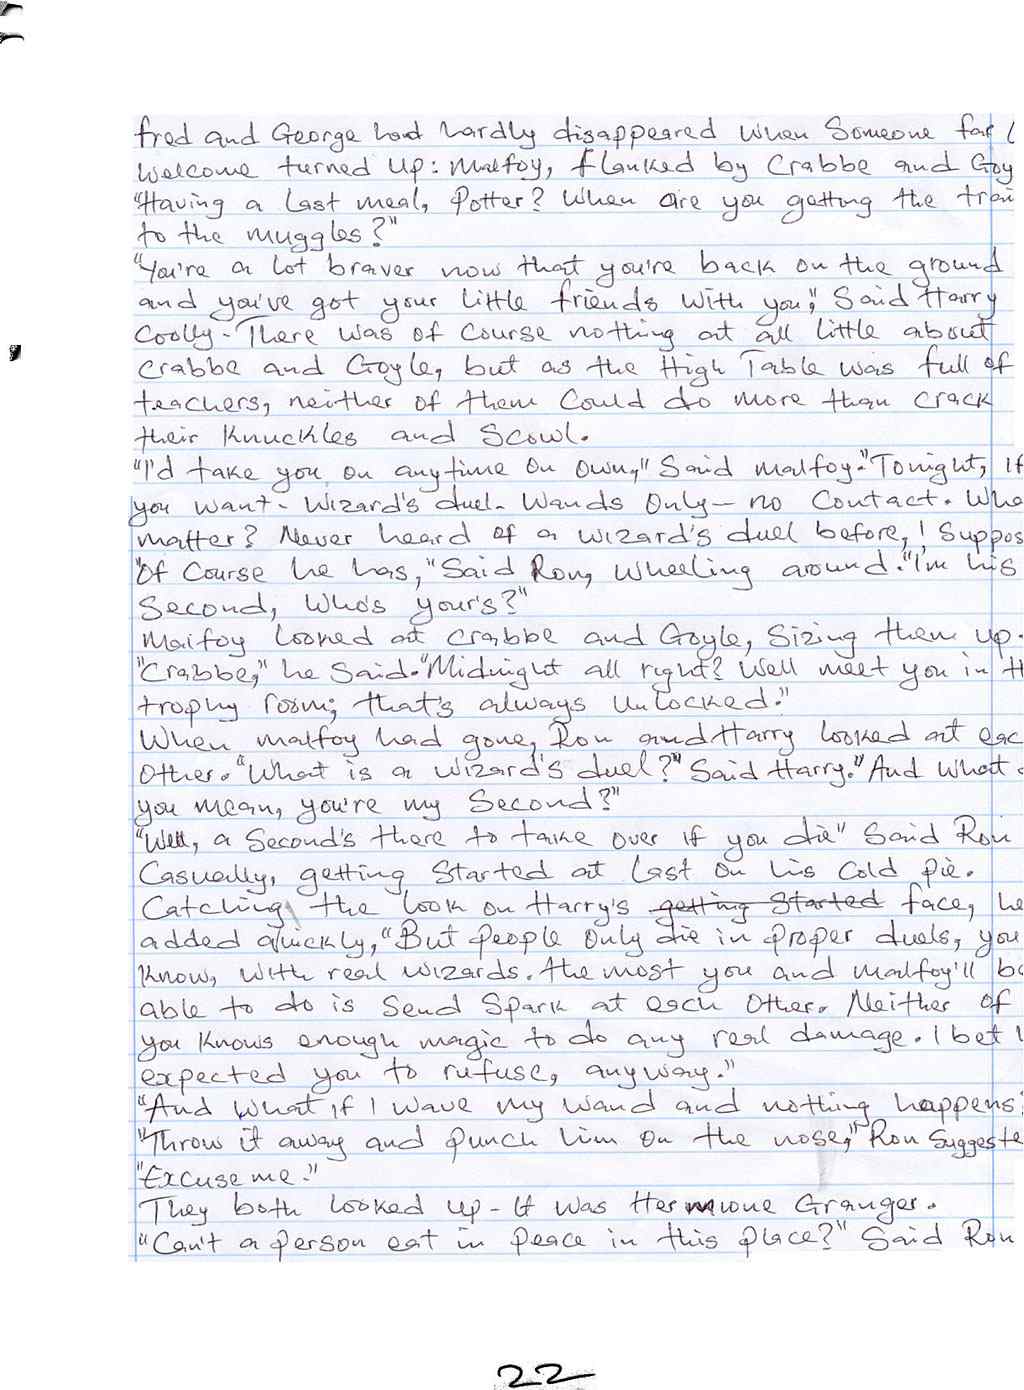 fred and George had hardly disappeared when Someone far l
welcome turned up: malfoy, flanked by Crabbe and Goy
"Having a last meal, Potter? When are you getting the train
to the muggles?"
"You're a lot braver now that you're back on the ground
and you've got your little friends with you," Said Harry
Coolly. There was of course nothing at all little about
Crabbe and Goyle, but as the High Table was full of
teachers, neither of them Could do more than crack
their knuckles and Scowl.
"I'd take you on anytime on own," Said malfoy. "Tonight, if
you want. Wizard's duel. Wands Only — no Contact. Wha
matter? Never heard of a wizard's duel before, I Suppos
"Of Course he has," Said Ron, wheeling around. "I'm his
Second, Who's your's?"
Malfoy looked at crabbe and Goyle, Sizing them up.
"Crabbe," he Said. "Midnight all right? Well meet you in th
trophy room; that's always unlocked."
When malfoy had gone, Ron and Harry looked at eac
Other. "What is a wizard's duel?" Said Harry. "And what
you mean, you're my Second?"
"Well, a Second's there to take over if you die" Said Ron
Casually, getting Started at last on his Cold pie.
Catching the look on Harry's getting Started face, he
added quickly, "But people Only die in proper duels, you
know, with real wizards. the most you and malfoy'll be
able to do is Send Spark at each Other. Neither of
you knows enough magic to do any real damage. I bet
expected you to rufuse, anyway."
"And what if I wave my wand and nothing happens
"Throw it away and punch him on the nose," Ron Suggeste
"Excuse me."
They both looked up. It was Hermione Granger.
"Can't a person eat in peace in this place?" Said Ron
22